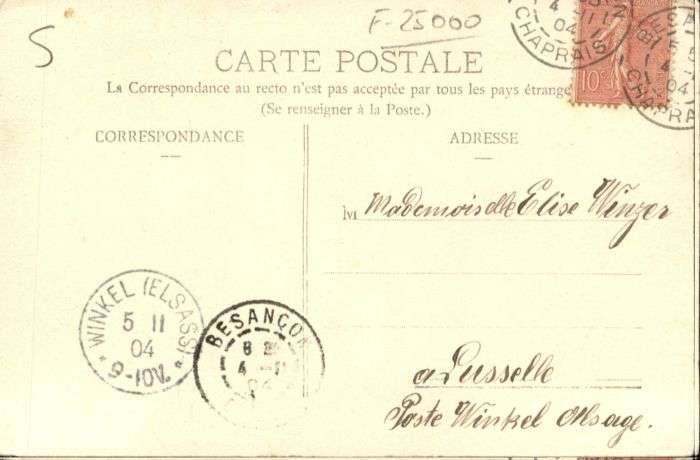 S
F-25000
CARTE POSTALE
La Correspondance au recto n'est pas acceptée par tous les pays étrange
(Se renseigner à la Poste.)
CORRESPONDANCE
ADRESSE
10c
4 -11
04
CHAPRAIS
4
04
CHAPRA
M Mademoiselle Elise Winzer
a Lusselle
Poste Winkel Alsage.
WINKEL (ELSASS)
5 11
04
9-10V.
BESANÇON
8
4
04